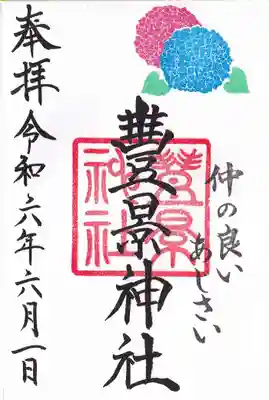 仲の良い
あじさい
豊景神社
豊景神社
奉拝令和六年六月一日